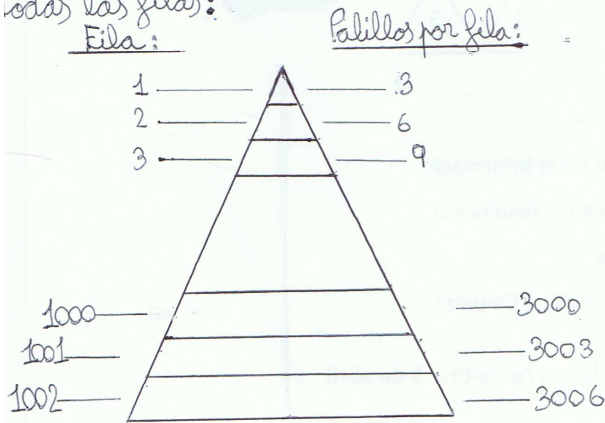 todas las filas:
Fila: Palillos por fila:
1 3
2 6
3 9
1000 3000
1001 3003
1002 3006